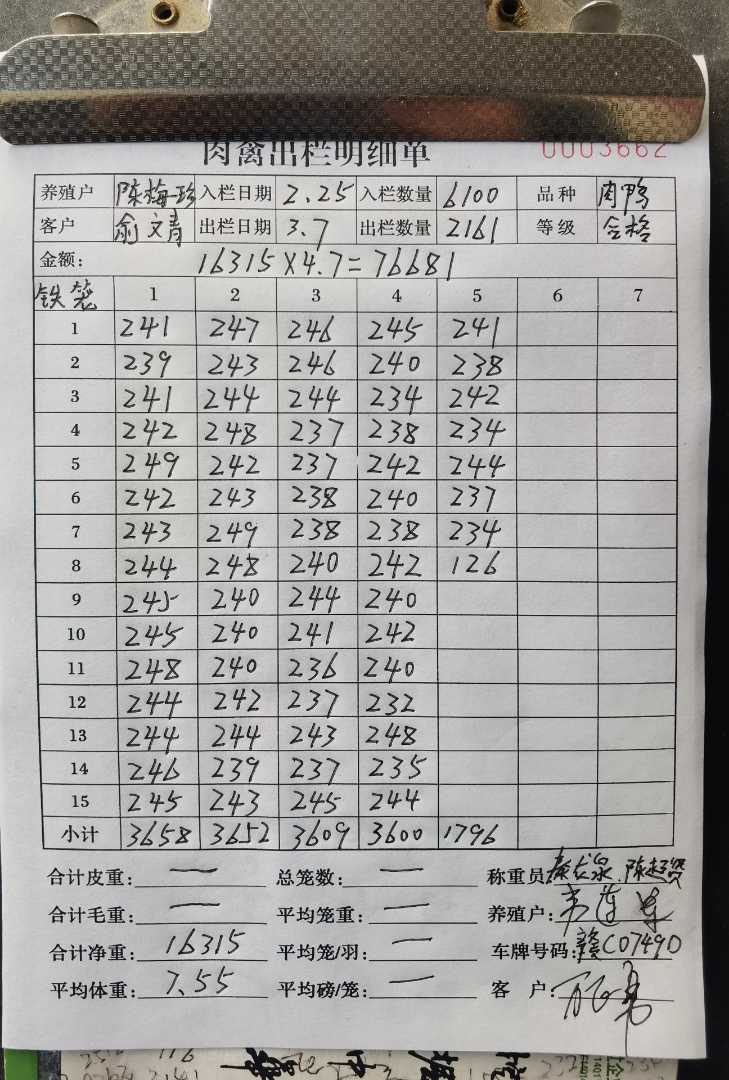 肉禽出栏明细单 0003662
养殖户 陈梅珍 入栏日期 2.25 入栏数量 6100 品种 肉鸭
客户 俞文青 出栏日期 3.7 出栏数量 2161 等级 合格
金额: 16315×4.7=76681
铁笼 1 2 3 4 5 6 7
1 241 247 246 245 241
2 239 243 246 240 238
3 241 244 244 234 242
4 242 248 237 238 234
5 249 242 237 242 244
6 242 243 238 240 237
7 243 249 238 238 234
8 244 248 240 242 126
9 245 240 244 240
10 245 240 241 242
11 248 240 236 240
12 244 242 237 232
13 244 244 243 248
14 246 239 237 235
15 245 243 245 244
小计 3658 3652 3609 3600 1796
合计皮重: — 总笼数: — 称重员:
合计毛重: — 平均笼重: — 养殖户:
合计净重: 16315 平均笼/羽: — 车牌号码: 赣C07490
平均体重: 7.55 平均磅/笼: — 客 户: